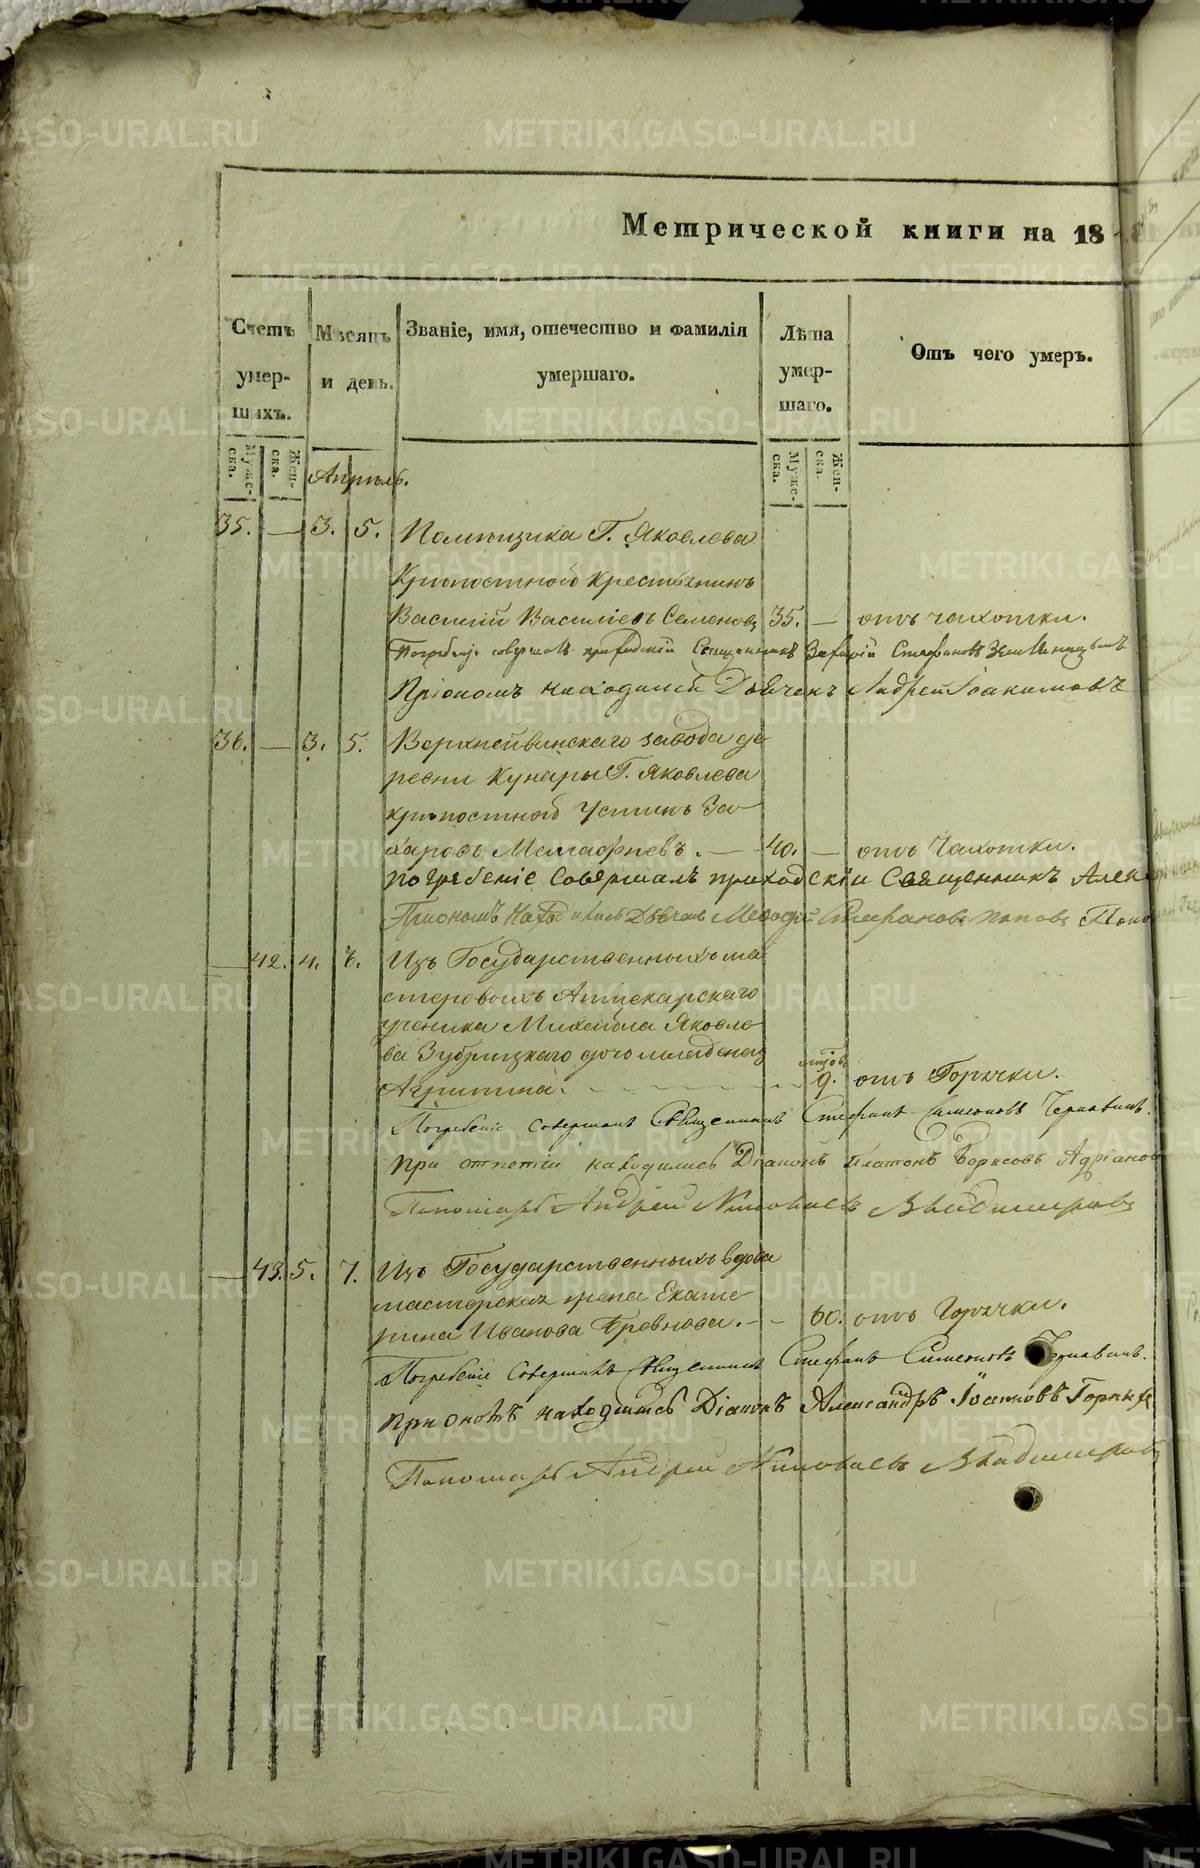 Метрической книги на 18
Счетъ умер-шихъ.
Мѣсяцъ и день.
Званіе, имя, отечество и фамилія умершаго.
Лѣта умер-шаго.
Отъ чего умеръ.
Муже-ска.
Жен-ска.
Муже-ска.
Жен-ска.
Апрѣль.
35. — 3. 5. Помѣщика Г. Яковлева
Крѣпостной крестьянинъ
Василій Васильевъ Семеновъ 35. — отъ чахотки.
Погребеніе совершалъ приходскій Священникъ Захарій Стефановъ
При ономъ находился Дьячекъ Андрей Іоакимовъ
36. — 3. 5. Верхнейвинскаго завода де
ревни Кунары Г. Яковлева
крѣпостной Устинъ За
харовъ 40. — отъ Чахотки.
погребеніе Совершалъ приходскій Священникъ Алек
При ономъ находились Дьячекъ Меѳодій Стефановъ Поповъ Поно
— 42. 4. 7. Изъ Государственныхъ ма
стеровыхъ Аптекарскаго
ученика Михайла Яковле
ва Зубрицкаго дочь младенецъ
Агрипина. 9. отъ Горячки.
Погребеніе совершалъ Священникъ Стефанъ Симеоновъ Чернавинъ.
При отпетіи находились Діаконъ Платонъ Борисовъ Адріанов
Пономарь Андрей Владимировъ
— 43. 5. 7. Изъ Государственныхъ вдова
мастерская жена Екате
рина Иванова Бревнова. — 60. отъ Горячки.
Погребеніе Совершалъ Священникъ Стефанъ Симеоновъ Чернавинъ.
При ономъ находились Діаконъ Александръ Іоанновъ Горныхъ
Пономарь Андрей Владимировъ
METRIKI.GASO-URAL.RU